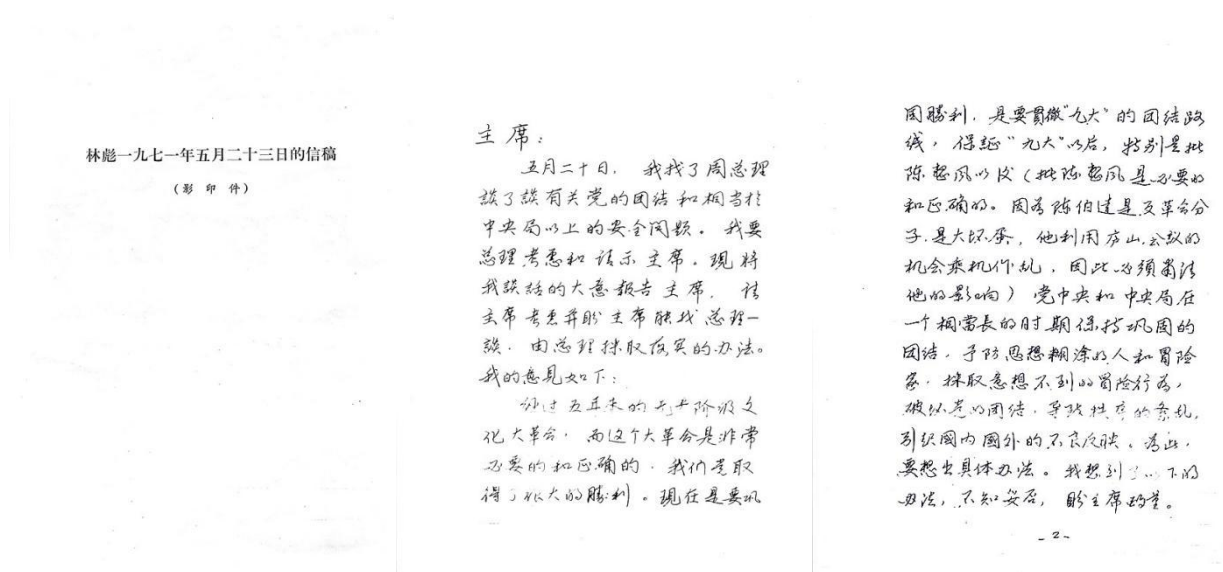 林彪一九七一年五月二十三日的信稿
（影印件）
主席：
五月二十日，我找了周总理
談了談有关党的团结和相当於
中央局以上的安全问题。我要
总理考虑和请示主席。现将
我談话的大意報告主席，请
主席考虑并盼主席能找总理一
談，由总理採取落实的办法。
我的意見如下：
经过五年来的无产阶级文
化大革命，而这个大革命是非常
必要的和正确的，我们党取
得了很大的勝利。現在是要巩
固勝利，是要貫徹“九大”的团结路
线，保証“九大”以后，特别是批
陈整风以后（批陈整风是必要的
和正确的。因为陈伯達是反革命分
子，是大坏蛋，他利用庐山会议的
机会乘机作乱，因此必須肅清
他的影响）党中央和中央局在
一个相當長的时期保持巩固的
团结，予防思想糊涂的人和冒险
家，採取意想不到的冒险行为，
破坏党的团结，导致秩序的紊乱，
引起國内國外的不良反映。為此，
要想出具体办法。我想到了以下的
办法，不知妥否，盼主席酌量。
-2-